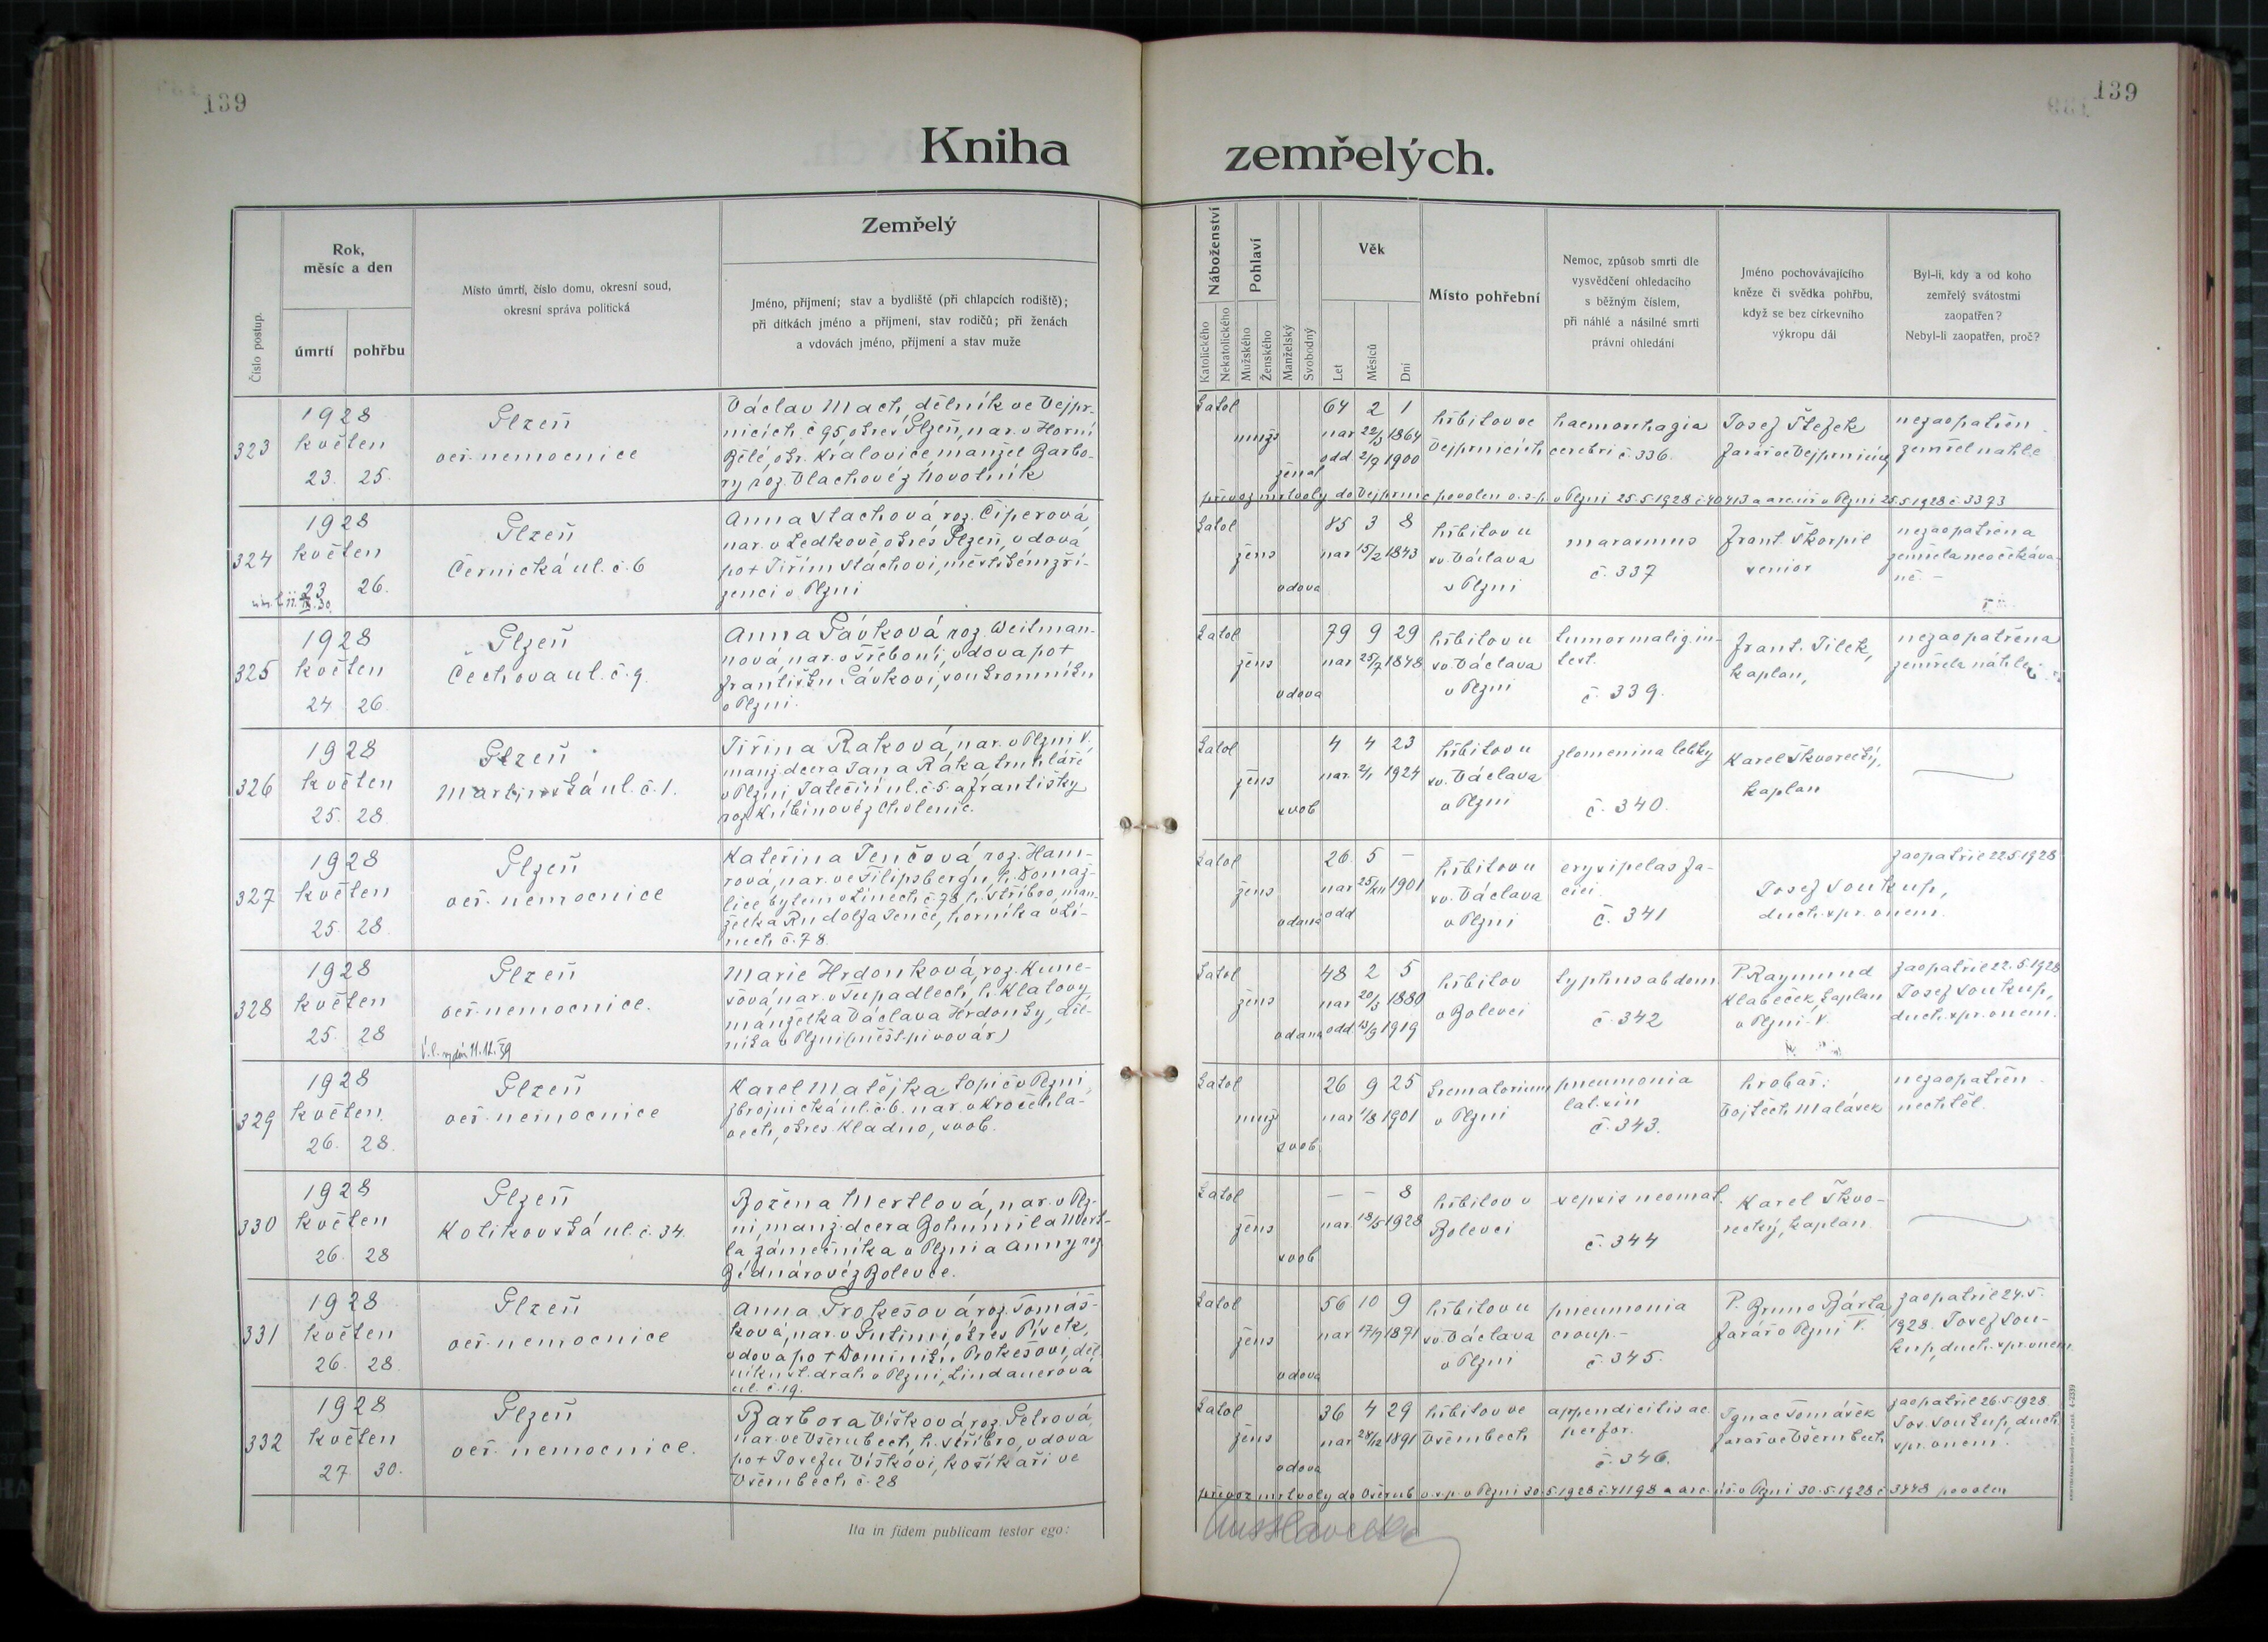 139
139
Kniha
zemřelých.
Číslo postup.
Rok,
měsíc a den
úmrtí
pohřbu
Místo úmrtí, číslo domu, okresní soud,
okresní správa politická
Zemřelý
Jméno, přijmení; stav a bydliště (při chlapcích rodiště);
při dítkách jméno a příjmení, stav rodičů; při ženách
a vdovách jméno, příjmení a stav muže
Náboženství
Katolického
Nekatolického
Pohlaví
Mužského
Ženského
Manželský
Svobodný
Věk
Let
Měsíců
Dní
Místo pohřební
Nemoc, způsob smrti dle
vysvědčení ohledacího
s běžným číslem,
při náhlé a násilné smrti
právní ohledání
Jméno pochovávajícího
kněze či svědka pohřbu,
když se bez církevního
výkropu dál
Byl-li, kdy a od koho
zemřelý svátostmi
zaopatřen?
Nebyl-li zaopatřen, proč?
323
1928
květen
23. 25.
Plzeň
veř. nemocnice
Václav Mach, dělník ve Vejpr-
nicích č 95, okres Plzeň, nar. v Horní
Bělé, okr. Kralovice, manžel Barbo-
ry roz. Vlachové z Novotník
katol
mužs
ženat
64 2 1
nar 22/3 1864
odd 2/9 1900
hřbitov ve
Vejprnicích
haemorrhagia
cerebri č. 336.
Josef Štefek
farář ve Vejprnicích
nezaopatřen
zemřel náhle
převoz mrtvoly do Vejprnic povolen o.s.p. v Plzni 25.5.1928 č 40413 a arc. úř. v Plzni 25.5.1928 č 3393
324
1928
květen
23 26.
Plzeň
Černická ul. č. 6
Anna Vlachová roz. Čiperová,
nar. v Ledkově okres Plzeň, vdova
po + Jiřím Vlachovi, městském zří-
zenci v Plzni
katol
žens
vdova
85 3 8
nar 15/2 1843
hřbitov u
sv. Václava
v Plzni
marasmus
č. 337
Frant. Škorpil
senior
nezaopatřena
zemřela neočekáva-
ně. -
325
1928
květen
24 26.
Plzeň
Čechova ul. č. 9.
Anna Pávková roz. Weitman-
nová, nar. v Třeboni, vdova po +
Františku Pávkovi, soukromníku
v Plzni.
katol
žens
vdova
79 9 29
nar 25/7 1848
hřbitov u
sv. Václava
v Plzni
tumor malig. in-
test.
č. 339.
Frant. Jílek,
kaplan,
nezaopatřena
zemřela náhle
326
1928
květen
25. 28.
Plzeň
Martinská ul. č. 1.
Jiřina Raková, nar. v Plzni V.
manž. dcera Jana Raka truhláře
v Plzni, Jateční ul. č. 5. a Františky
roz. Kubínové z Cholenic.
katol
žens
svob
4 4 23
nar. 2/1 1924
hřbitov u
sv. Václava
v Plzni
zlomenina lebky
č. 340.
Karel Škvorecký,
kaplan
327
1928
květen
25. 28.
Plzeň
veř. nemocnice
Kateřina Jenčová, roz. Ham-
rová, nar. ve Filipsbergu, h. Domaž-
lice bytem v Línech č. 78, h. Stříbro, man-
želka Rudolfa Jenče, horníka v Lí-
nech č. 78.
katol
žens
vdaná
26 5 -
nar 25/XII 1901
odd
hřbitov u
sv. Václava
v Plzni
erysipelas fa-
ciei.
č. 341
zaopatřil 22.5.1928
Josef Soukup,
duch. spr. v nem.
328
1928
květen
25. 28
Plzeň
veř. nemocnice.
Marie Hrdonková, roz. Kune-
šová, nar. v Tupadlech, h. Klatovy,
manželka Václava Hrdonky, děl-
níka v Plzni (měšť. pivovár)
katol
žens
vdaná
48 2 5
nar 20/3 1880
odd 13/9 1919
hřbitov
v Bolevci
typhus abdom.
č. 342
P. Raymund
Klabeček, kaplan
v Plzni V.
zaopatřil 22.5.1928
Josef Soukup,
duch. spr. v nem.
329
1928
květen
26. 28.
Plzeň
veř. nemocnice
Karel Matějka, topič v Plzni
Zbrojnická ul. č. 6. nar. v Kročehla-
vech, okres Kladno, svob.
katol
muž
svob.
26 9 25
nar 1/8 1901
krematorium
v Plzni
pneumonia
lat. sin
č. 343.
hrobař:
Vojtěch Malásek
nezaopatřen
nechtěl.
330
1928
květen
26. 28
Plzeň
Kotikovská ul. č. 34.
Božena Mertlová, nar. v Plz-
ni, manž. dcera Bohumila Mert-
la zámečníka v Plzni a Anny roz.
Bednárové z Bolevce.
katol
žens
svob
- - 8
nar 18/5 1928
hřbitov v
Bolevci
sepsis neonat.
č. 344
Karel Škvo-
recký, kaplan
331
1928
květen
26. 28.
Plzeň
veř. nemocnice
Anna Prokešová roz. Tomáš-
ková, nar. v Putimi, okres Písek,
vdova po + Dominiku Prokešovi, děl-
níku st. drah v Plzni, Lindauerova
ul. č. 19.
katol
žens
vdova
56 10 9
nar 17/7 1871
hřbitov u
sv. Václava
v Plzni
pneumonia
croup. -
č. 345.
P. Bruno Bárta
farář v Plzni V.
zaopatřil 24.5.
1928. Josef Sou-
kup, duch. spr. v nem.
332
1928
květen
27. 30.
Plzeň
veř. nemocnice.
Barbora Víšková roz. Petrová,
nar. ve Všerubech, h. Stříbro, vdova
po + Josefu Víškovi, košíkáři ve
Všerubech č. 28
katol
žens
vdova
36 4 29
nar 28/12 1891
hřbitov ve
Všerubech
appendicitis ac.
perfor.
č. 346.
Ignac Tomášek
farář ve Všerubech
zaopatřil 26.5.1928
Jos. Soukup, duch.
spr. v nem.
převoz mrtvoly do Všerub o.s.p. v Plzni 30.5.1928 č. 41198 a arc. úř. v Plzni 30.5.1928 č 3448 povolen
Ita in fidem publicam testor ego: